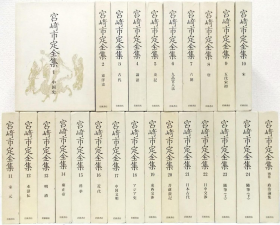 宮崎市定全集
1 中国史
宮崎市定全集 2 東洋史
宮崎市定全集 3 古代
宮崎市定全集 4 論語
宮崎市定全集 5 史記
宮崎市定全集 6 九品官人法
宮崎市定全集 7 六朝
宮崎市定全集 8 唐
宮崎市定全集 9 五代宋初
宮崎市定全集 10 宋
宮崎市定全集 11
宮崎市定全集 12 水滸伝
宮崎市定全集 13 明清
宮崎市定全集 14 雍正帝
宮崎市定全集 15 科挙
宮崎市定全集 16 近代
宮崎市定全集 17 中国文明
宮崎市定全集 18 アジア史
宮崎市定全集 19 東西交渉
宮崎市定全集 20 菩薩蛮記
宮崎市定全集 21 日本古代
宮崎市定全集 22 日中交渉
宮崎市定全集 23 随筆(上)
宮崎市定全集 24 随筆(下)
宮崎市定全集